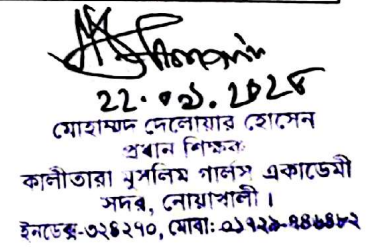 22.09.2025
মোহাম্মদ দেলোয়ার হোসেন
প্রধান শিক্ষক
কালীতারা মুসলিম গার্লস একাডেমী
সদর, নোয়াখালী ।
ইনডেক্স-৩২৪২৭০, মোবা: